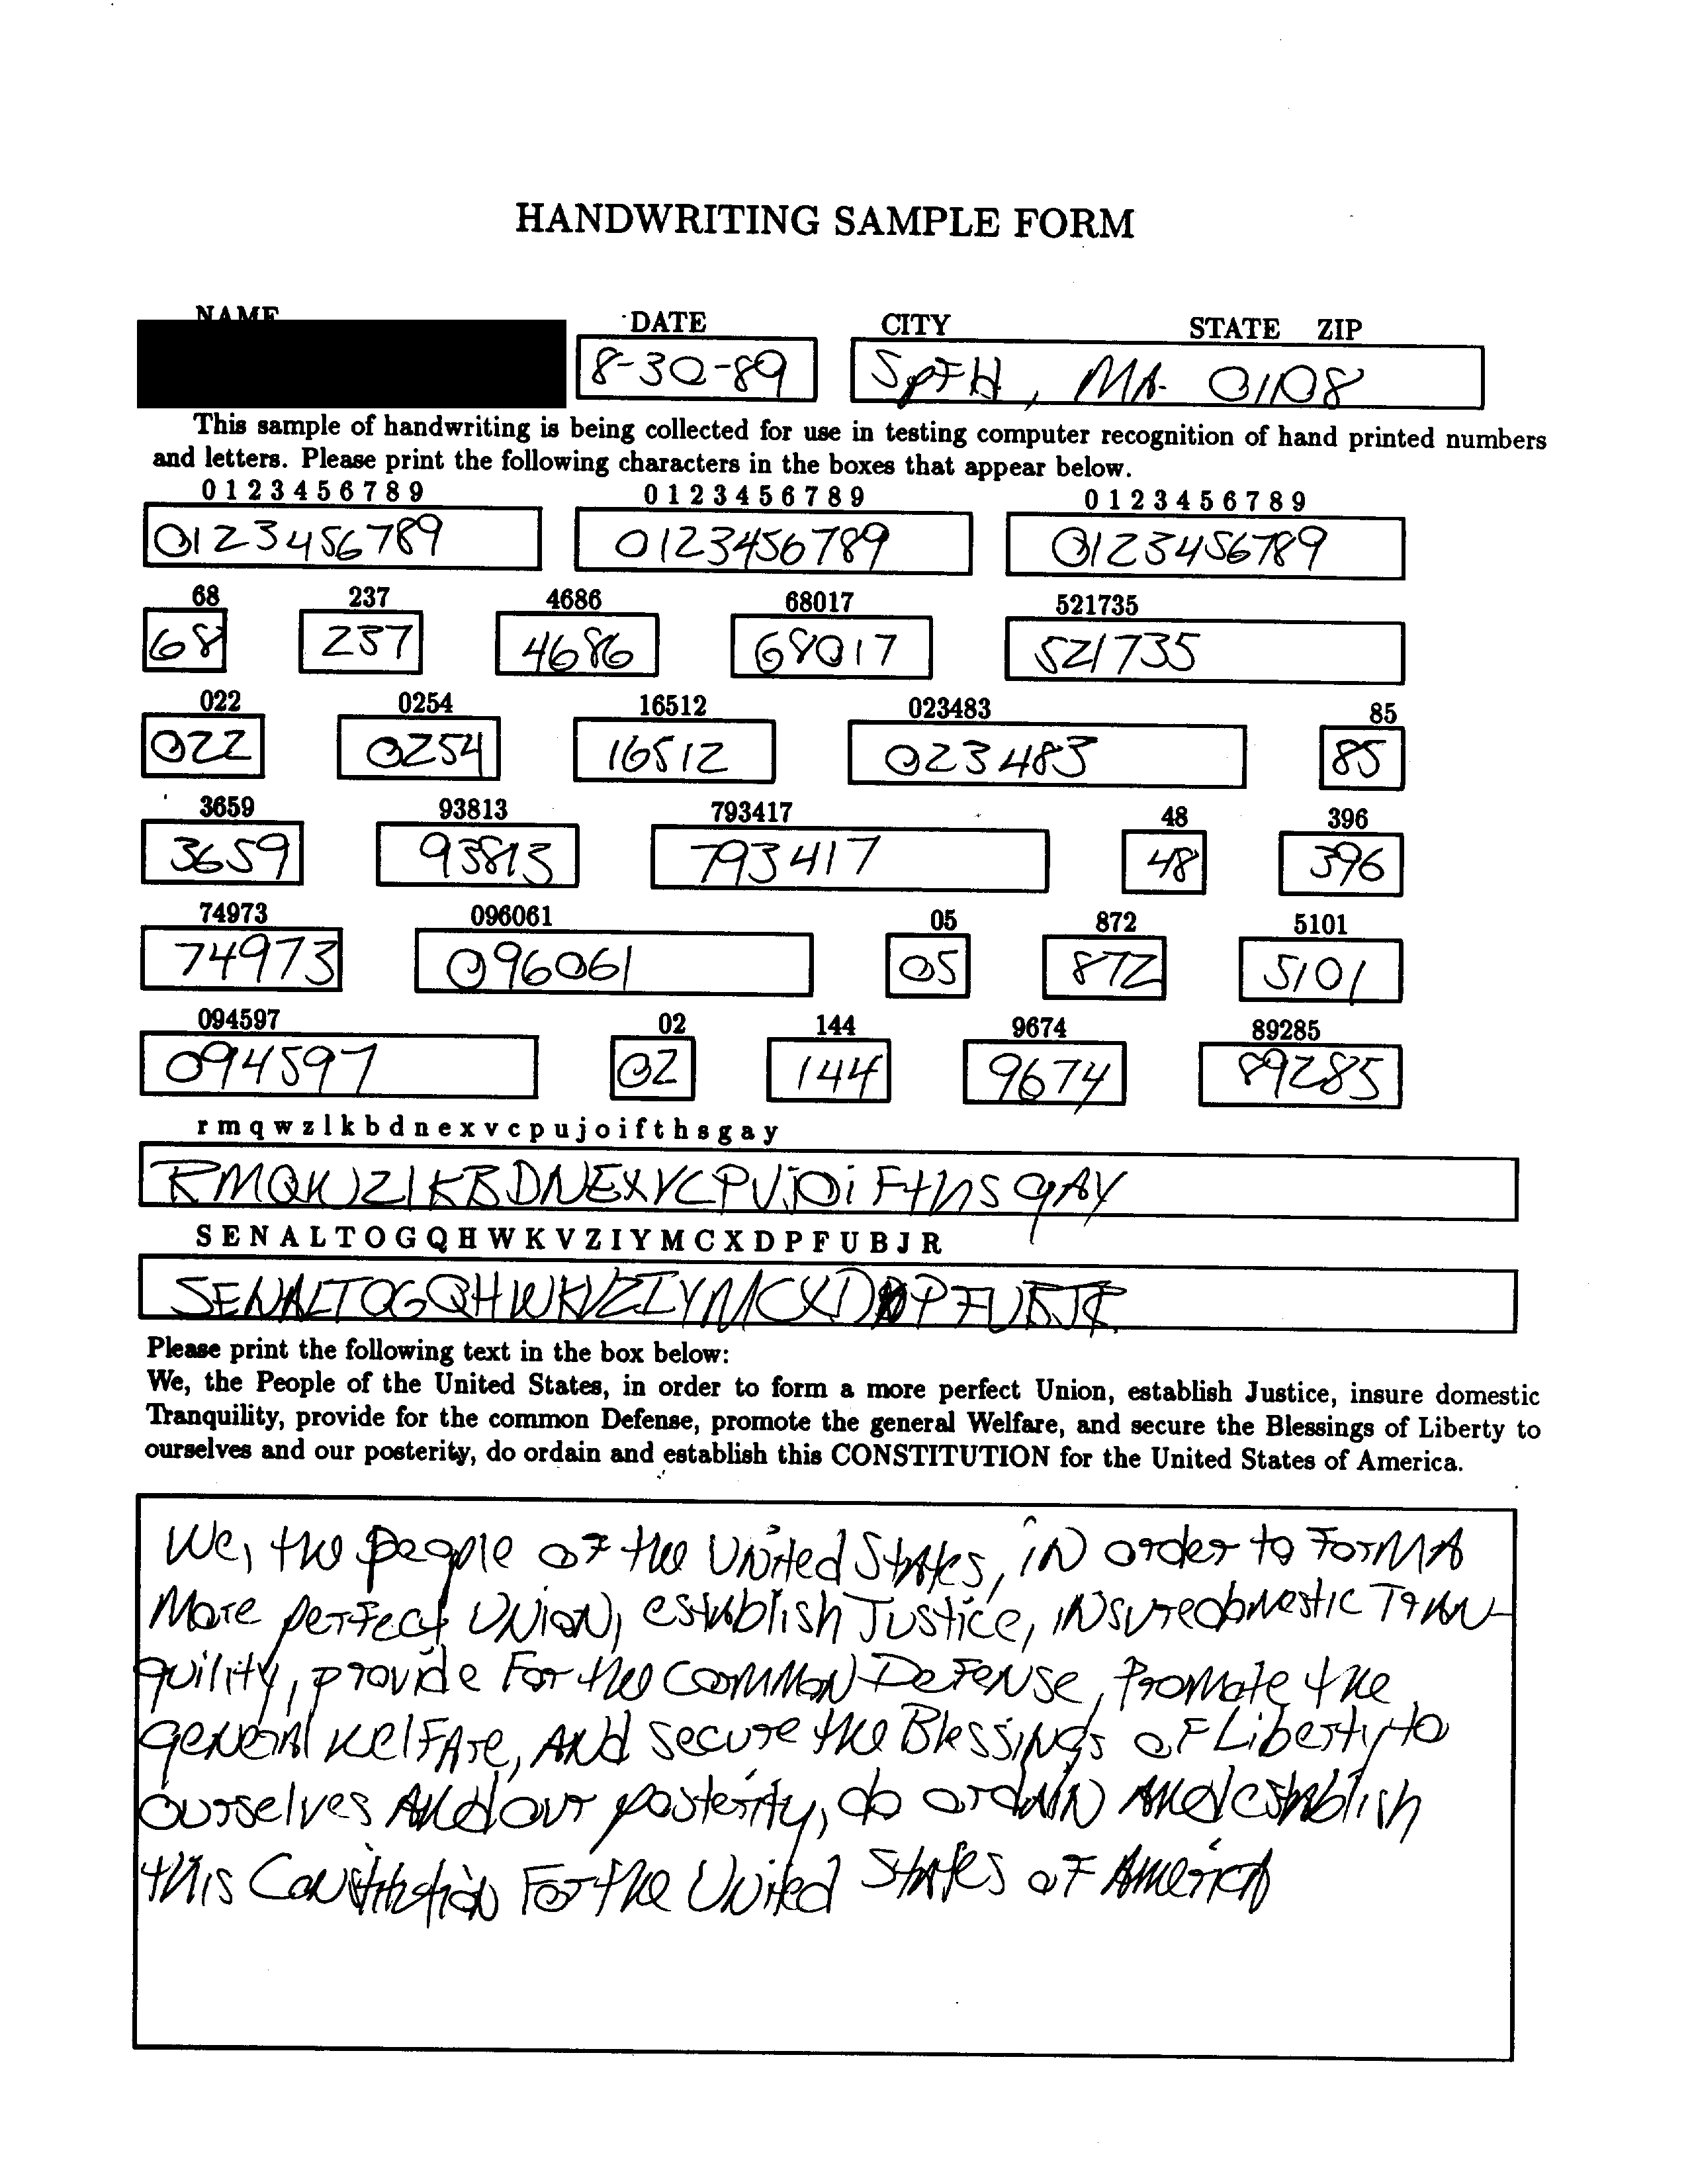 HANDWRITING SAMPLE FORM
NAME DATE CITY STATE ZIP
8-30-89 SpFH, MA. 01108
This sample of handwriting is being collected for use in testing computer recognition of hand printed numbers
and letters. Please print the following characters in the boxes that appear below.
0 1 2 3 4 5 6 7 8 9 0 1 2 3 4 5 6 7 8 9 0 1 2 3 4 5 6 7 8 9
0123456789 0123456789 0123456789
68 237 4686 68017 521735
68 237 4686 68017 521735
022 0254 16512 023483 85
022 0254 16512 023483 85
3659 93813 793417 48 396
3659 93813 793417 48 396
74973 096061 05 872 5101
74973 096061 05 872 5101
094597 02 144 9674 89285
094597 02 144 9674 89285
r m q w z l k b d n e x v c p u j o i f t h s g a y
RMQWZlKBDNEXVCPUjOiFthSgAY
S E N A L T O G Q H W K V Z I Y M C X D P F U B J R
SENALTOGQHWKVZIYMCXDPFUBJR
Please print the following text in the box below:
We, the People of the United States, in order to form a more perfect Union, establish Justice, insure domestic
Tranquility, provide for the common Defense, promote the general Welfare, and secure the Blessings of Liberty to
ourselves and our posterity, do ordain and establish this CONSTITUTION for the United States of America.
We, the people oF the UNited StAtes, iN order to ForM A
More perFect UNioN, estAblish Justice, iNsure domestic TrAN-
quility, provide For the CoMMoN DeFeNse, ProMote the
geNerAl WelFAre, ANd secure the BlessiNgs oF Liberty to
ourselves ANd our posterity, do ordAiN ANd estAblish
this CoNstitutioN For the UNited StAtes oF AMericA